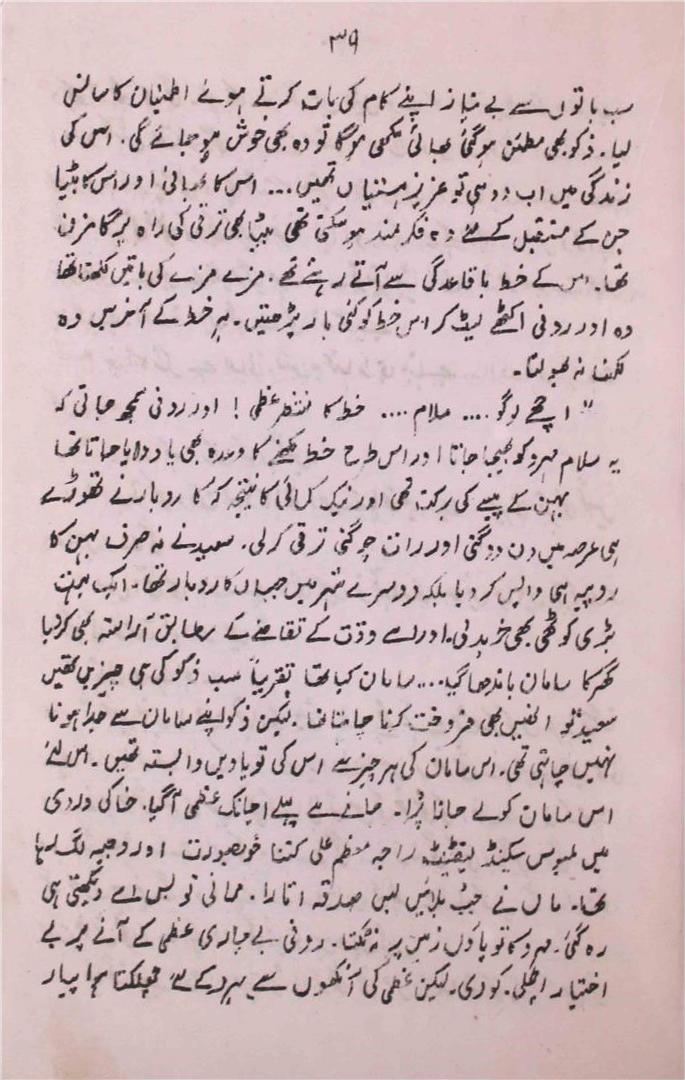 ۳۹
سب باتوں سے بے نیاز اپنے کام کی بات کرتے ہوئے اطمنان کا سانس
لیا۔ ذکو بھی مطمئن ہوگئی بھائی سکھی ہوگا تو وہ بھی خوش ہو جائے گی۔ اس کی
زندگی میں اب دو ہی تو عزیز ہستیاں تھیں... اس کا بھائی اور اس کا بیٹا
جن کے مستقبل کے لئے وہ فکر مند ہو سکتی تھی بیٹا بھی ترقی کی راہ پر گامزن
تھا۔ اس کے خط باقاعدگی سے آتے رہتے تھے۔ مزے مزے کی باتیں لکھتا تھا
وہ اور رونی اکٹھے لیٹ کر اس خط کو کئی بار پڑھتیں۔ ہر خط کے آخر میں وہ
لکھنا نہ بھولتا۔
" اچھے لوگو .... سلام .... خط کا منتظر عظمی ! اور رونی سمجھ جاتی کہ
یہ سلام مہرو کو بھیجا جاتا اور اس طرح خط لکھنے کا وعدہ بھی یاد دلایا جاتا تھا
بہن کے پیسے کی برکت تھی اور نیک کمائی کا نتیجہ کہ کاروبار نے تھوڑے
ہی عرصہ میں دن دوگنی اور رات چوگنی ترقی کر لی۔ سعید نے نہ صرف بہن کا
روپیہ ہی واپس کر دیا بلکہ دوسرے شہر میں جہاں کاروبار تھا۔ ایک بہت
بڑی کوٹھی بھی خرید لی۔ اور اسے وقت کے تقاضے کے مطابق آراستہ بھی کر دیا
گھر کا سامان باندھا گیا.... سامان کیا تھا تقریباً سب ذکو کی ہی چیزیں تھیں
سعید تو انھیں بھی فروخت کرنا چاہتا تھا۔ لیکن ذکو اپنے سامان سے جدا ہونا
نہیں چاہتی تھی۔ اس سامان کی ہر چیز سے اس کی تو یادیں وابستہ تھیں۔ اس لئے
اس سامان کو لے جانا پڑا۔ جانے سے پہلے اچانک عظمی آگیا۔ خاکی وردی
میں ملبوس سیکنڈ لیفٹیننٹ راجہ معظم علی کتنا خوبصورت اور وجیہہ لگ رہا
تھا۔ ماں نے جھٹ بلائیں لیں صدقہ اتارا۔ ممانی تو بس اسے دیکھتی ہی
رہ گئی۔ مہرو کا تو پاؤں زمین پر نہ ٹکتا۔ رونی بے چاری عظمی کے آنے پر بے
اختیار اچھلی۔ کودی۔ لیکن عظمی کی آنکھوں سے مہرو کے لئے چھلکتا ہوا پیار